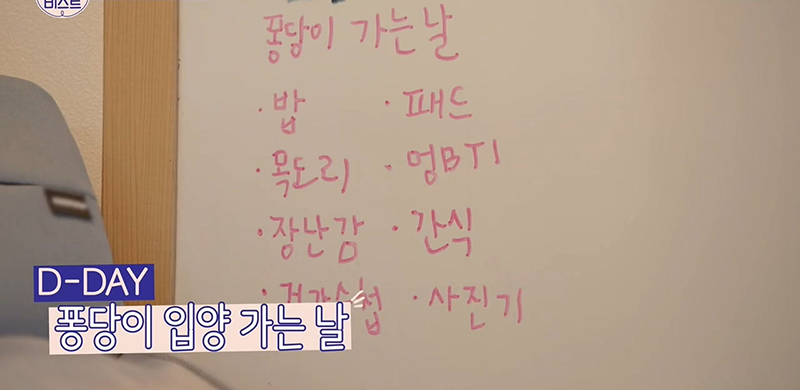 비스트
퐁당이 가는 날
· 밥 · 패드
· 목도리 · 멍BTI
· 장난감 · 간식
· 사진기
D-DAY
퐁당이 입양 가는 날